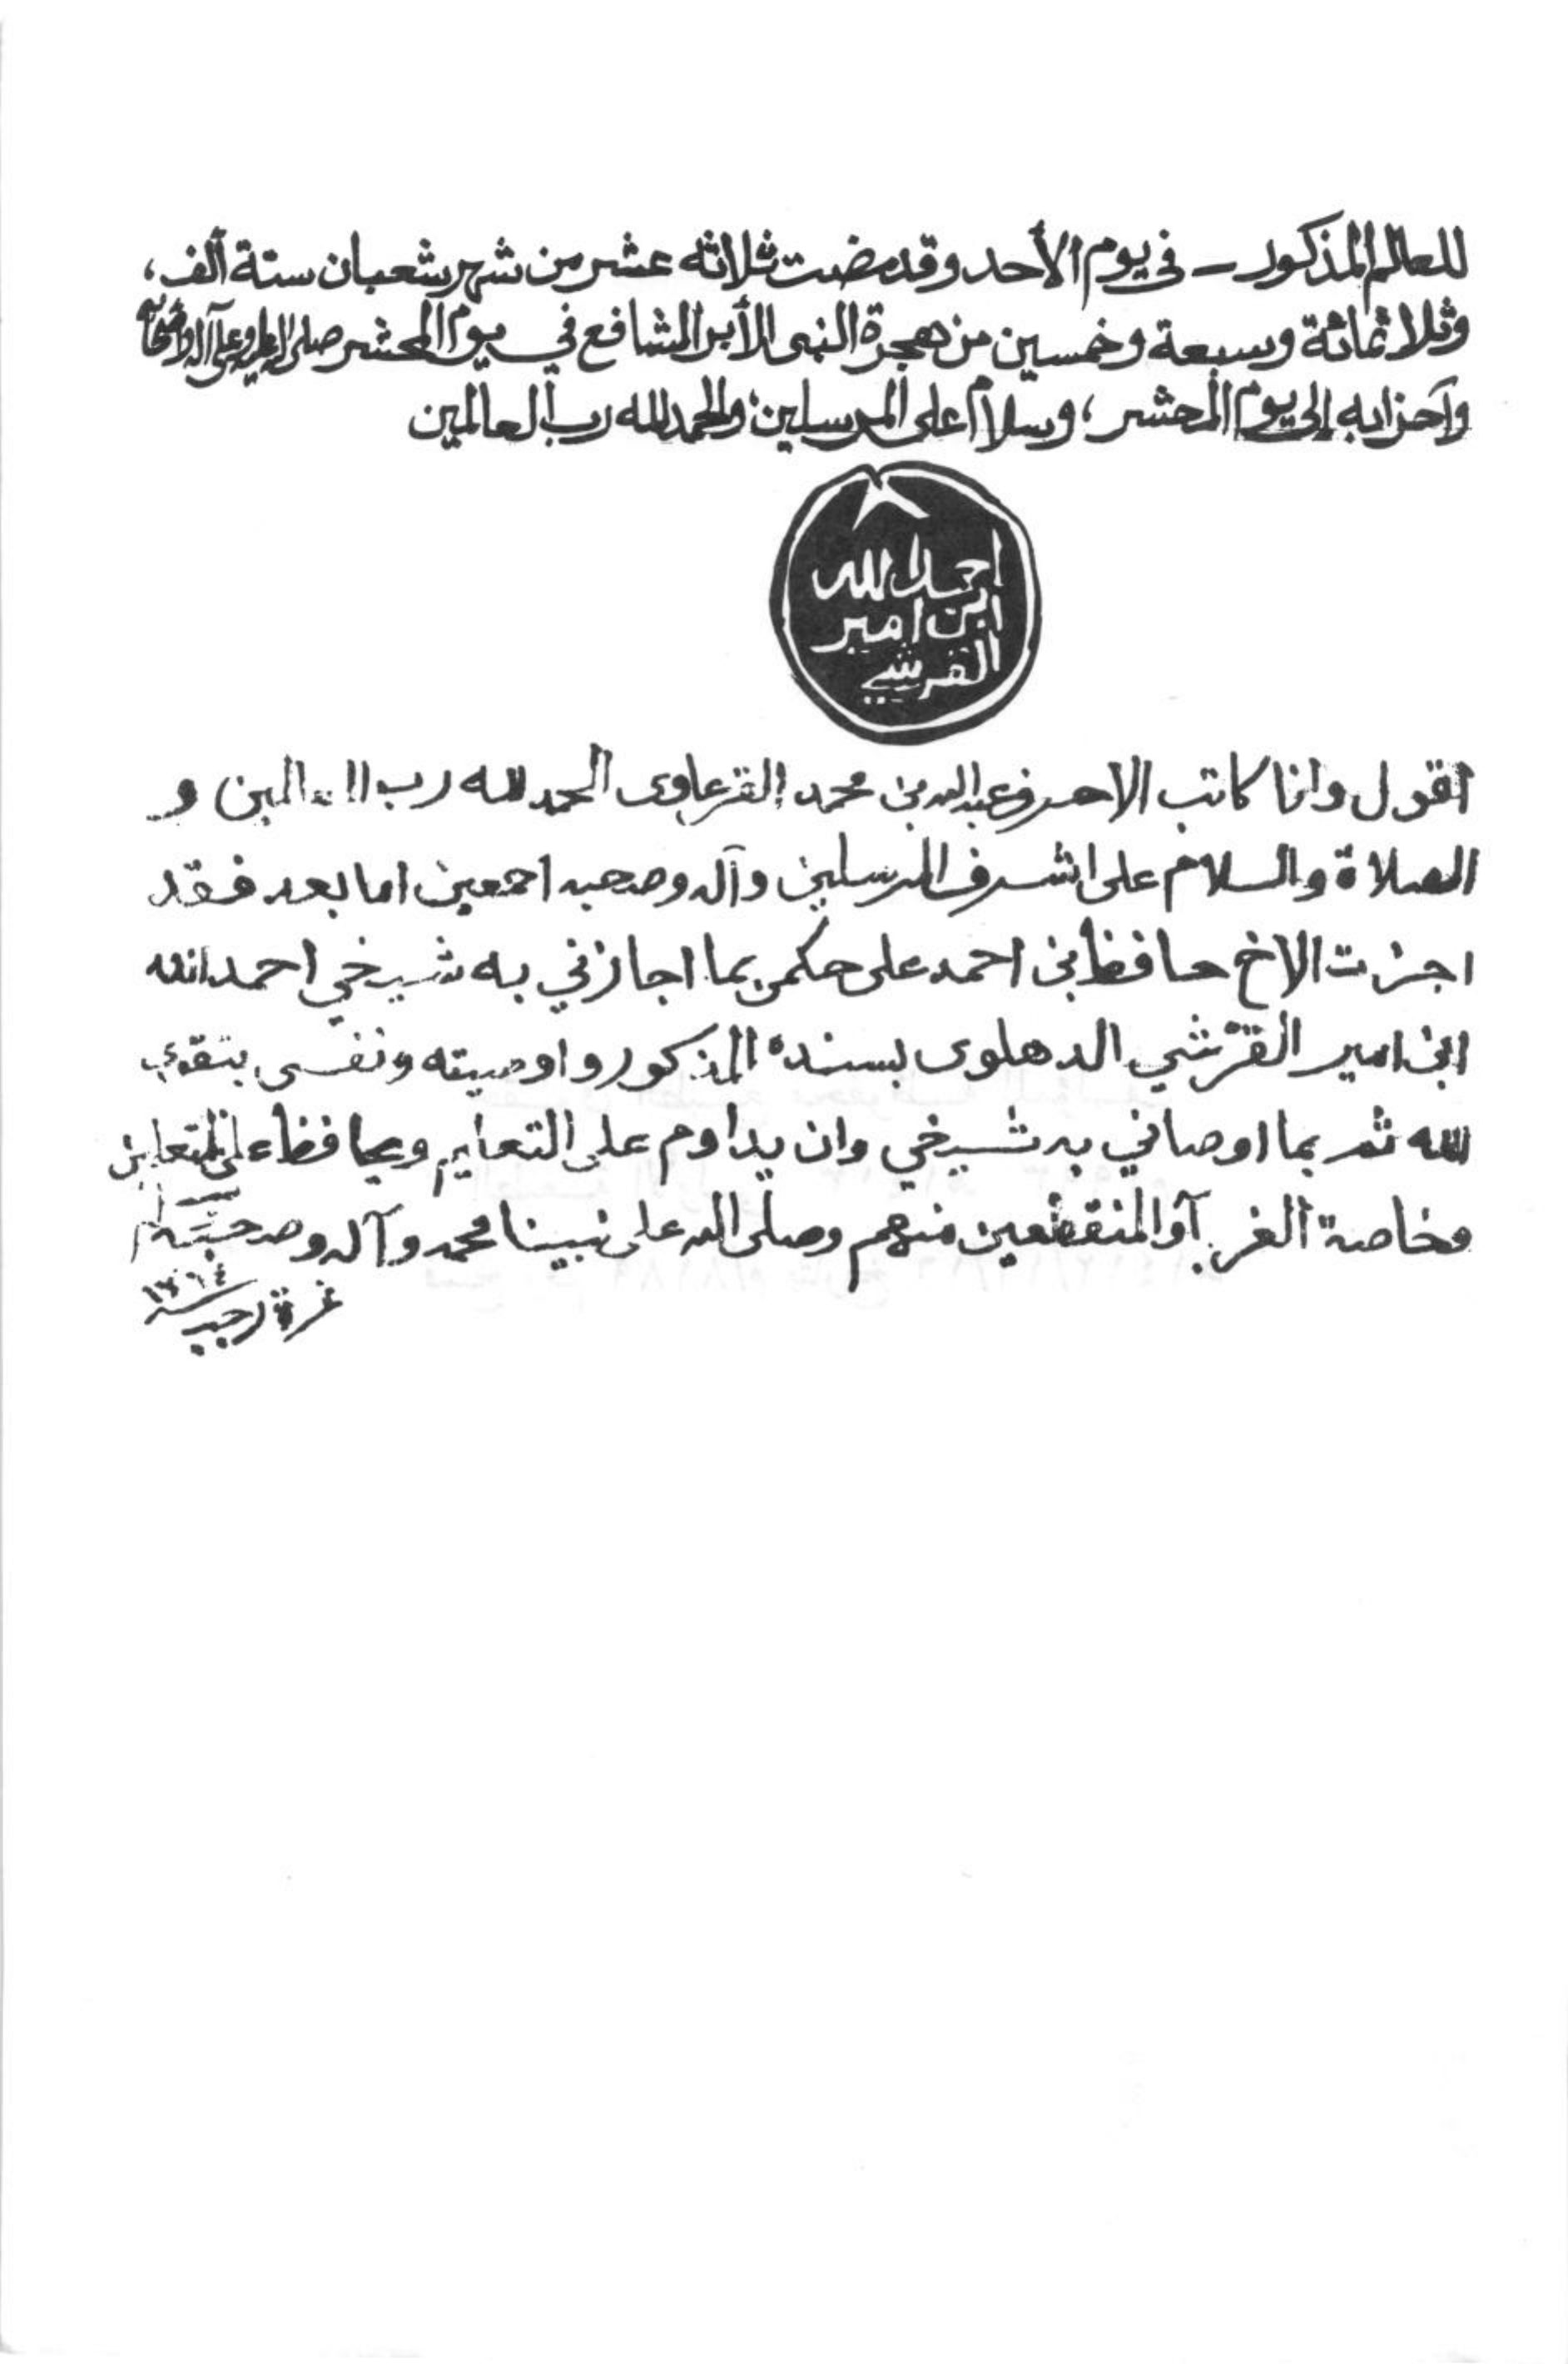 للعالم المذكور - في يوم الأحد وقد مضت ثلاثه عشر من شهر شعبان سنة ألف،
وثلاثمائة وسبعة وخمسين من هجرة النبى الأبر الشافع في يوم المحشر صلى الله عليه وعلى آله وأصحابه
وأحزابه إلى يوم المحشر، وسلام على المرسلين، والحمد لله رب العالمين
احمد الله
ابن امير
القرشي
اقول وانا كاتب الاحرف عبد الله بن محمد القرعاوى الحمد لله رب العالمين و
الصلاة والسلام على اشرف المرسلين وآله وصحبه اجمعين اما بعد فقد
اجزت الاخ حافظ بن احمد على حكمي بما اجازني به شيخي احمد الله
ابن امير القرشي الدهلوى بسنده المذكور واوصيته ونفسى بتقوى
الله ثم بما اوصاني به شيخي وان يداوم على التعليم ويحافظ على المتعلمين
وخاصة الغربآو المنقطعين منهم وصلى الله على نبينا محمد وآله وصحبه
غرة رجب سنة